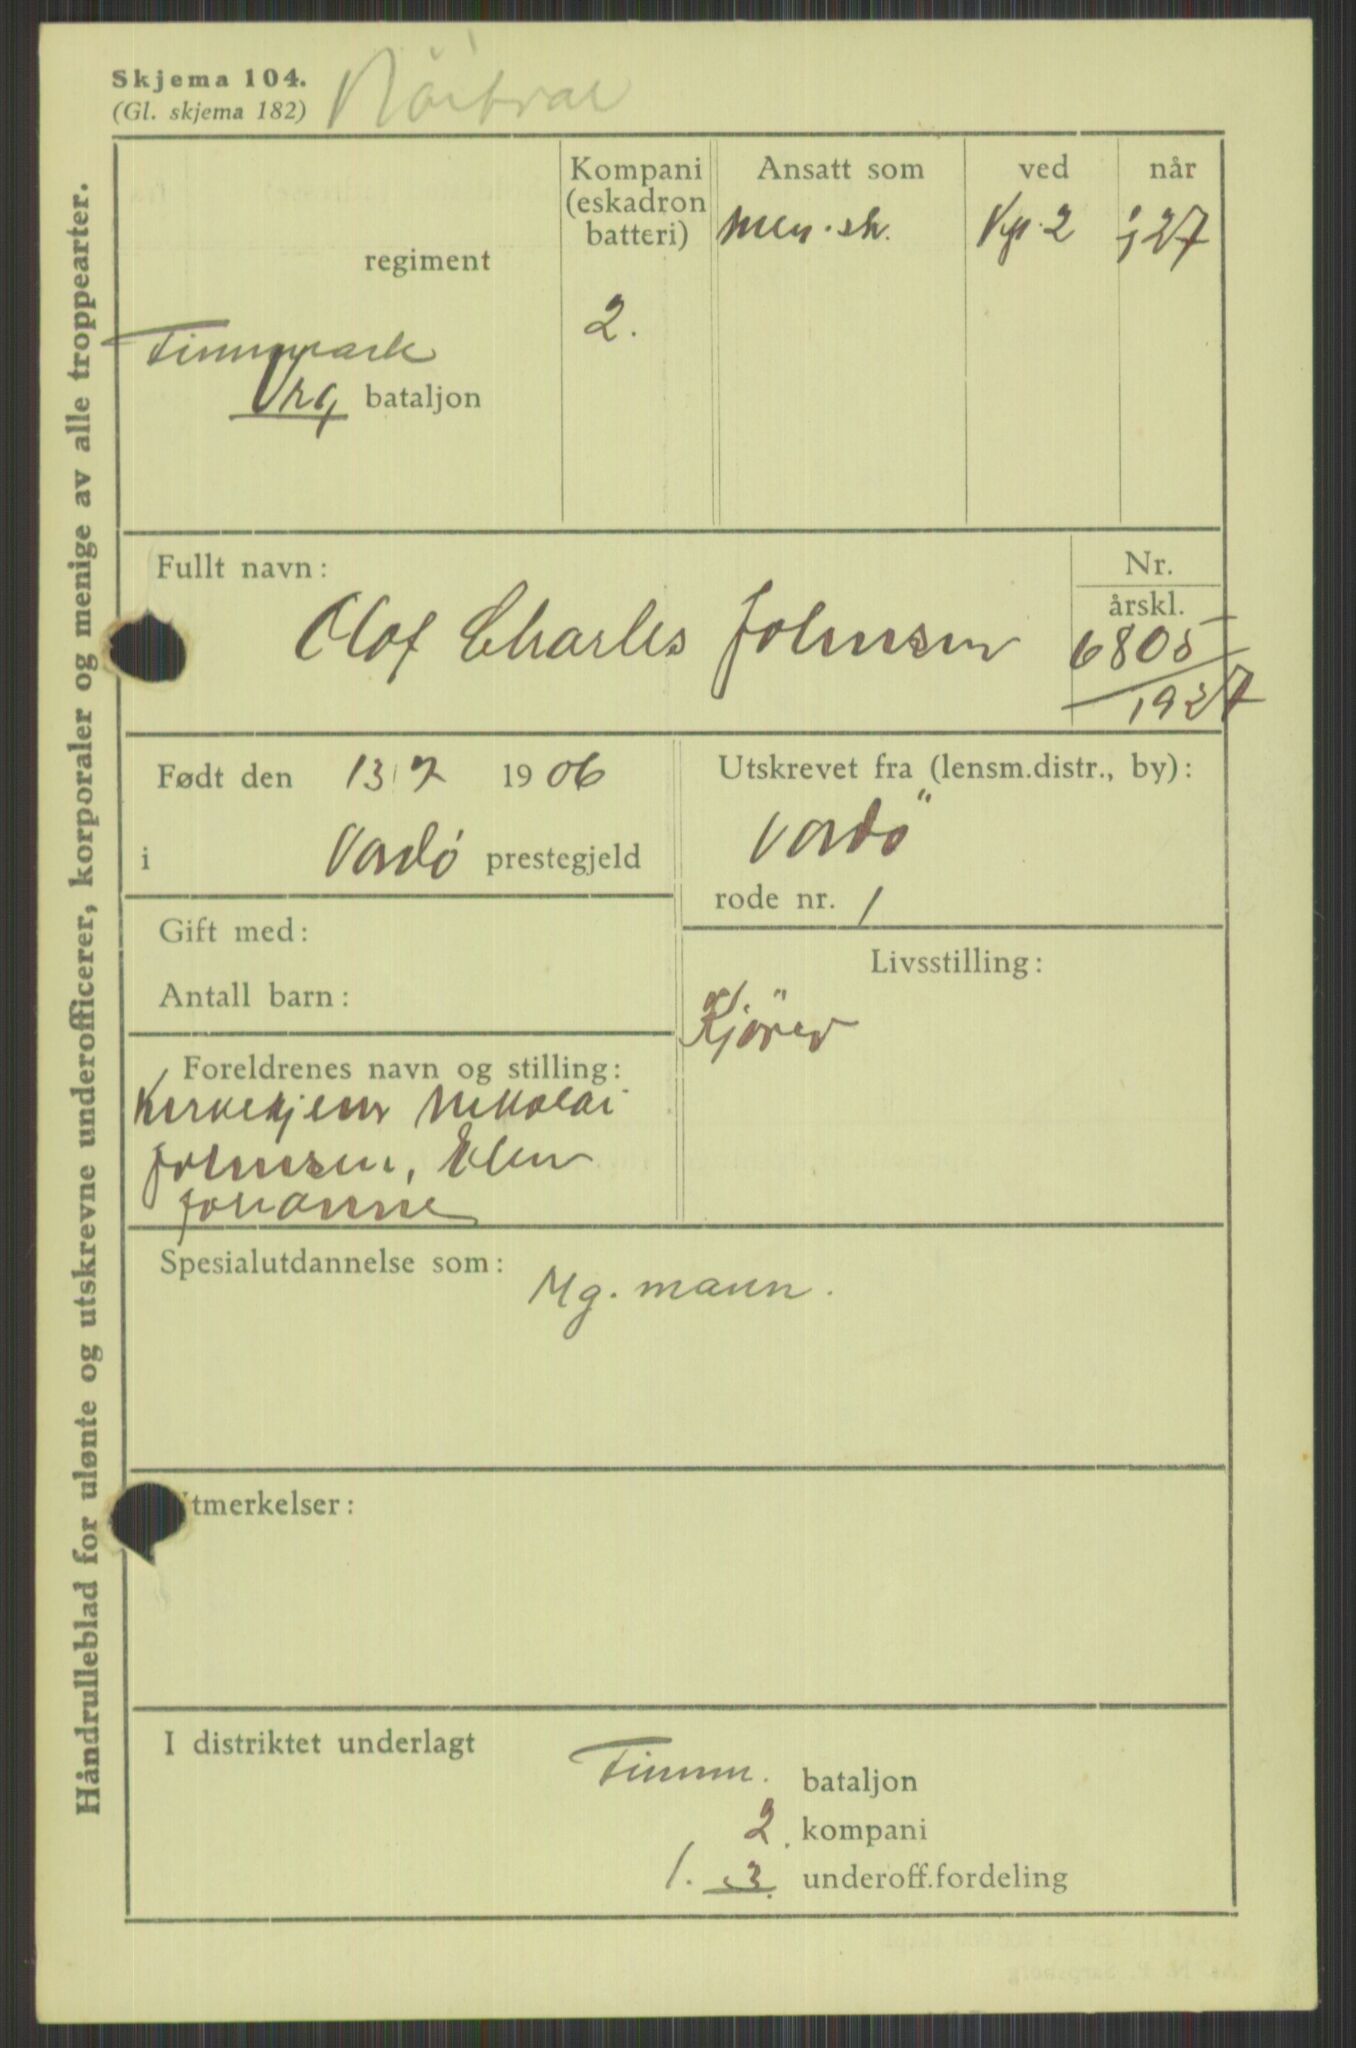 Skjema 104.
(Gl. skjema 182)
Håndrulleblad for ulønte og utskrevne underofficerer, korporaler og menige av alle troppearter.
regiment
Finnmark
Vrg bataljon
Kompani
(eskadron
batteri)
2.
Ansatt som
Men. sk.
ved
Kp. 2
når
27
Fullt navn:
Olof Charles Johnsen
Nr.
årskl.
6805
1927
Født den 13/7 1906
i Vardø prestegjeld
Utskrevet fra (lensm.distr., by):
Vardö
rode nr. 1
Gift med:
Antall barn:
Livsstilling:
Kjörer
Foreldrenes navn og stilling:
Nikolai
Johnsen, Elen
Johanne
Spesialutdannelse som:
Mg. mann.
tmerkelser:
I distriktet underlagt
Finnm. bataljon
2. kompani
1. 3. underoff.fordeling